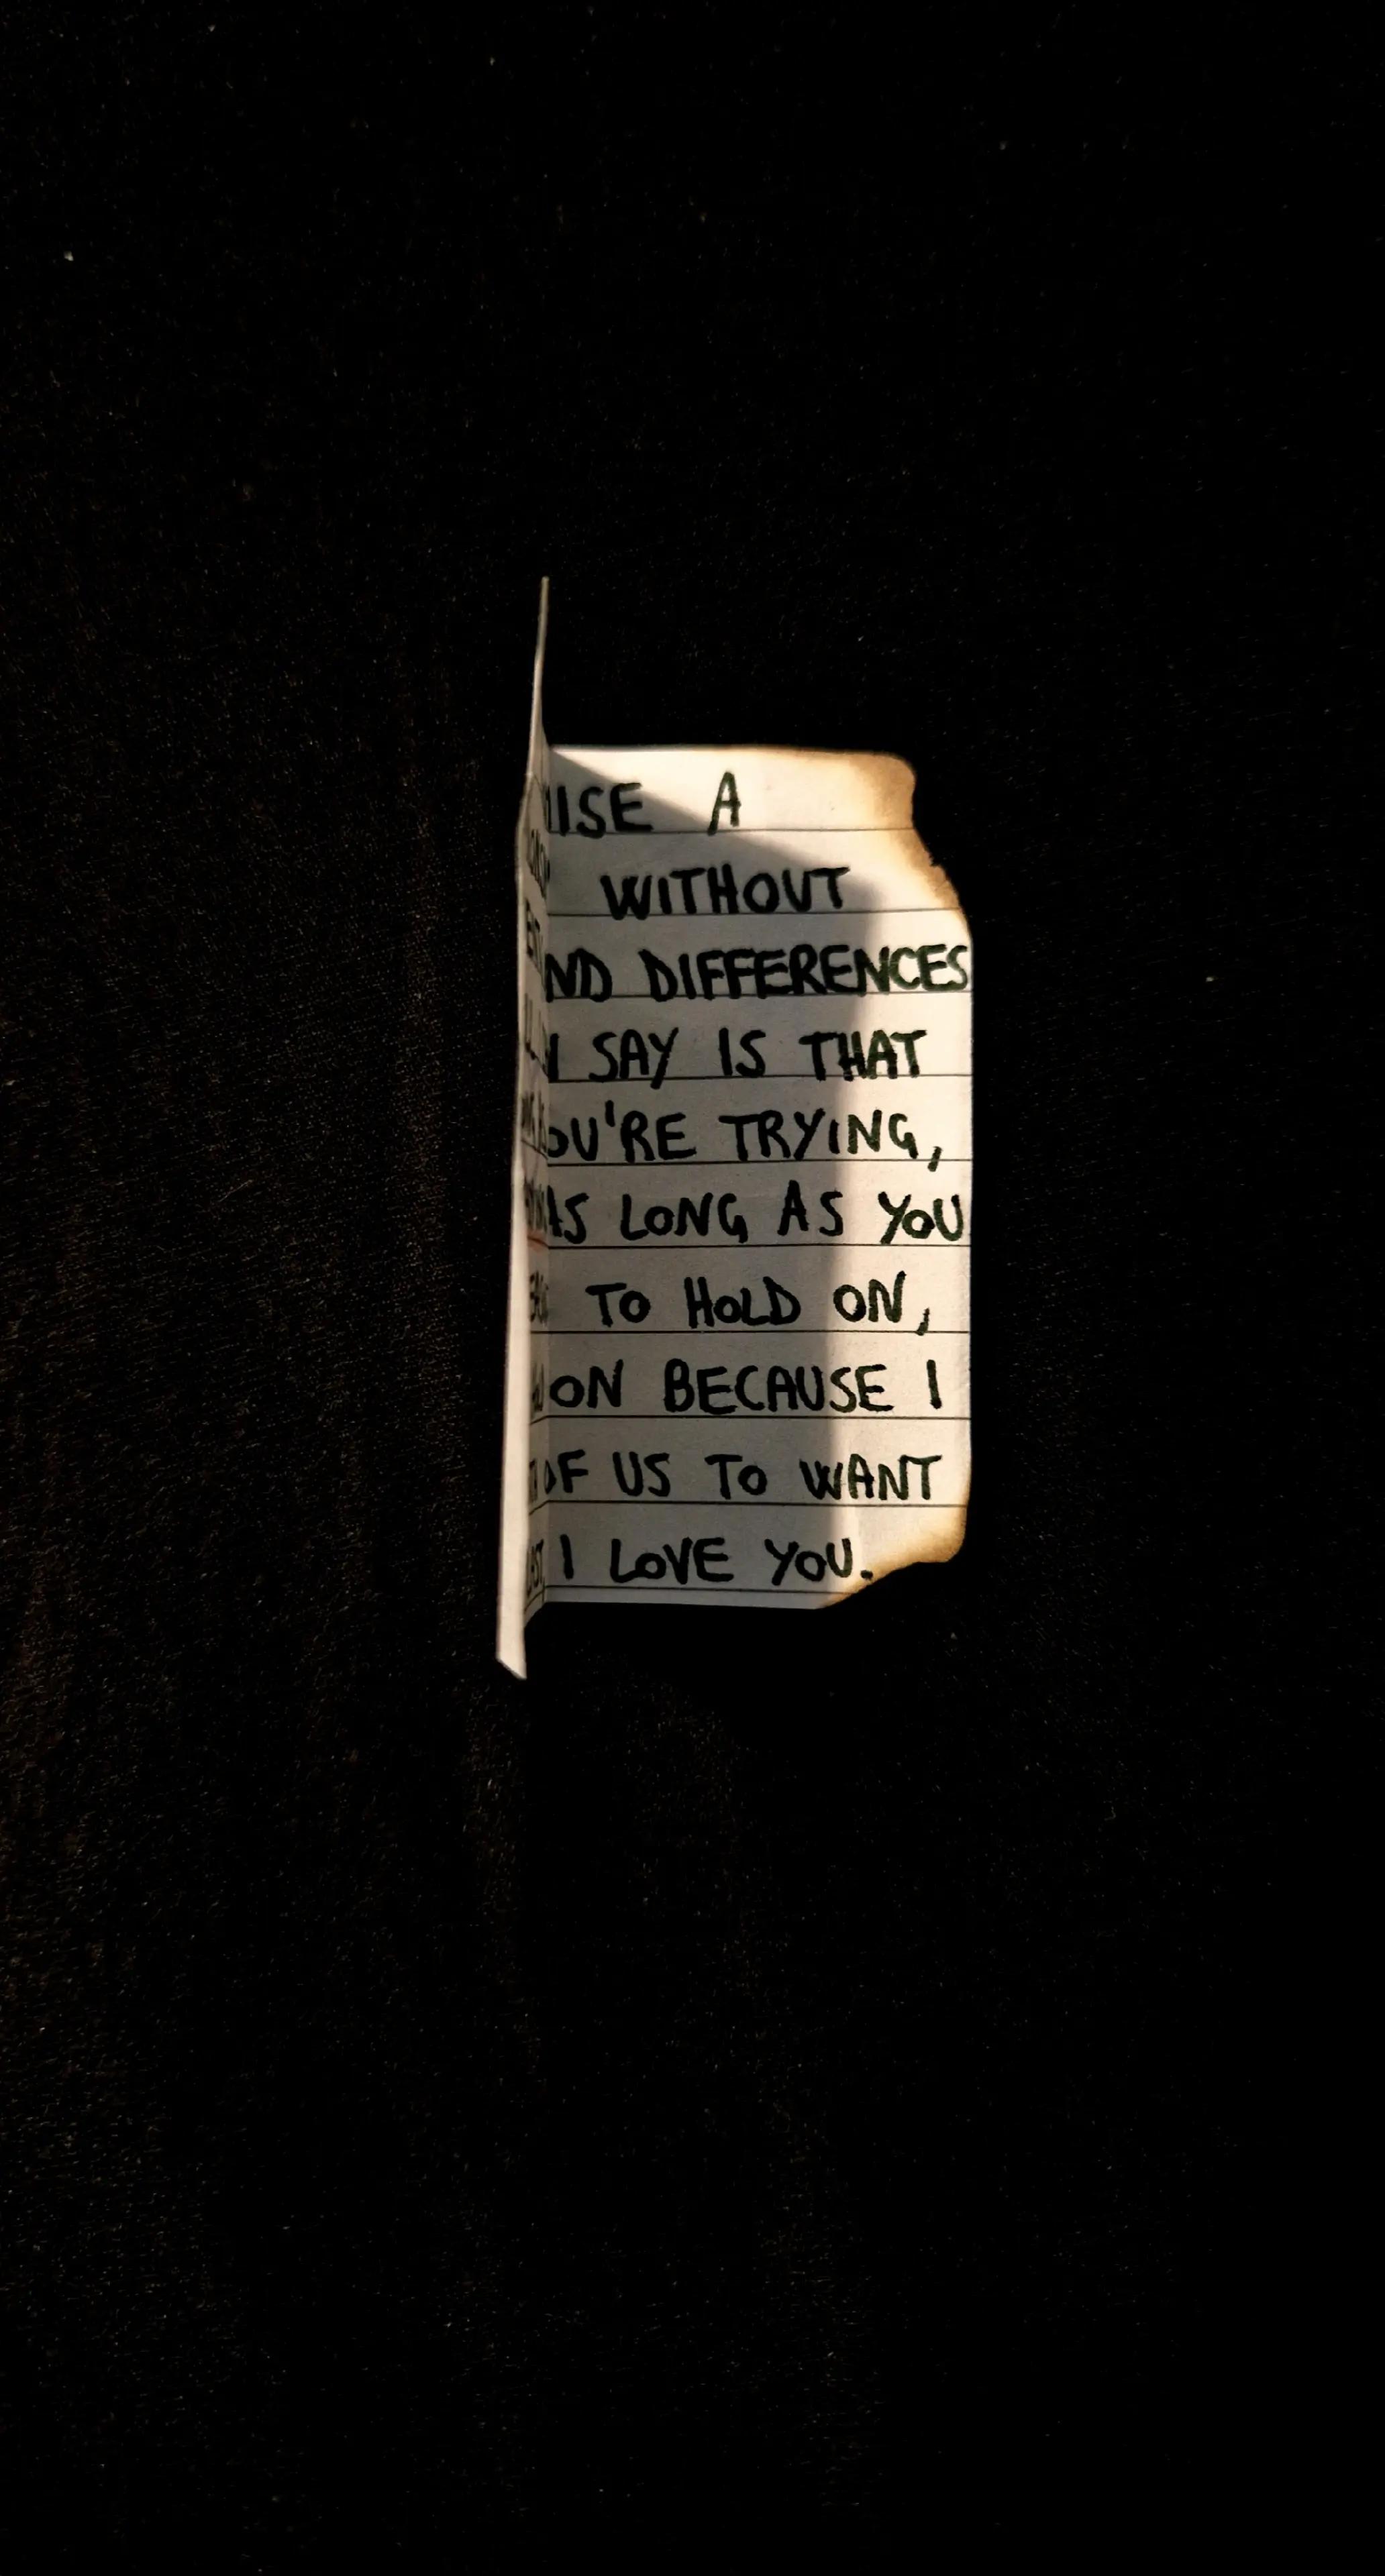 A
WITHOUT
DIFFERENCES
SAY IS THAT
TRYING,
AS LONG AS YOU
TO HOLD ON,
ON BECAUSE I
OF US TO WANT
I LOVE YOU.